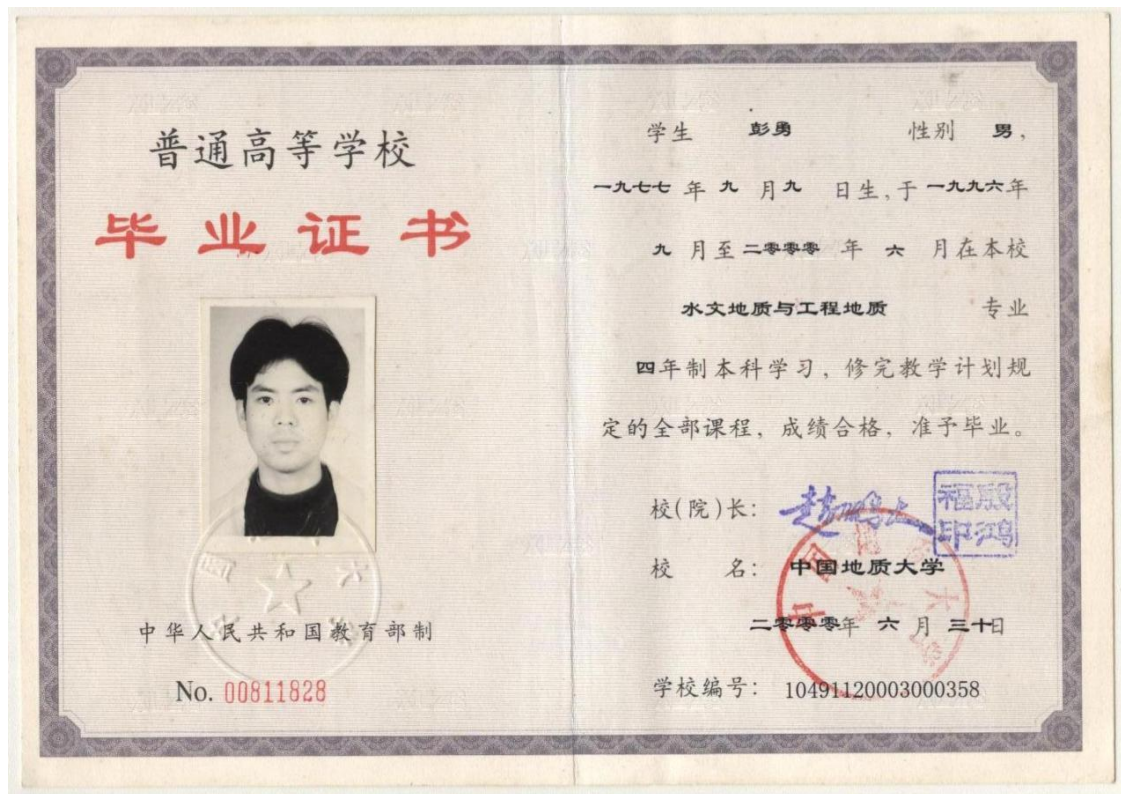 普通高等学校
毕业证书
中华人民共和国教育部制
No. 00811828
学生 彭勇 性别 男,
一九七七 年 九 月 九 日生,于 一九九六年
九 月至 二零零零 年 六 月在本校
水文地质与工程地质 专业
四年制本科学习, 修完教学计划规
定的全部课程, 成绩合格, 准予毕业。
校(院)长: 
殷鸿福印
校 名: 中国地质大学
二零零零年 六 月 三十日
学校编号: 10491120003000358